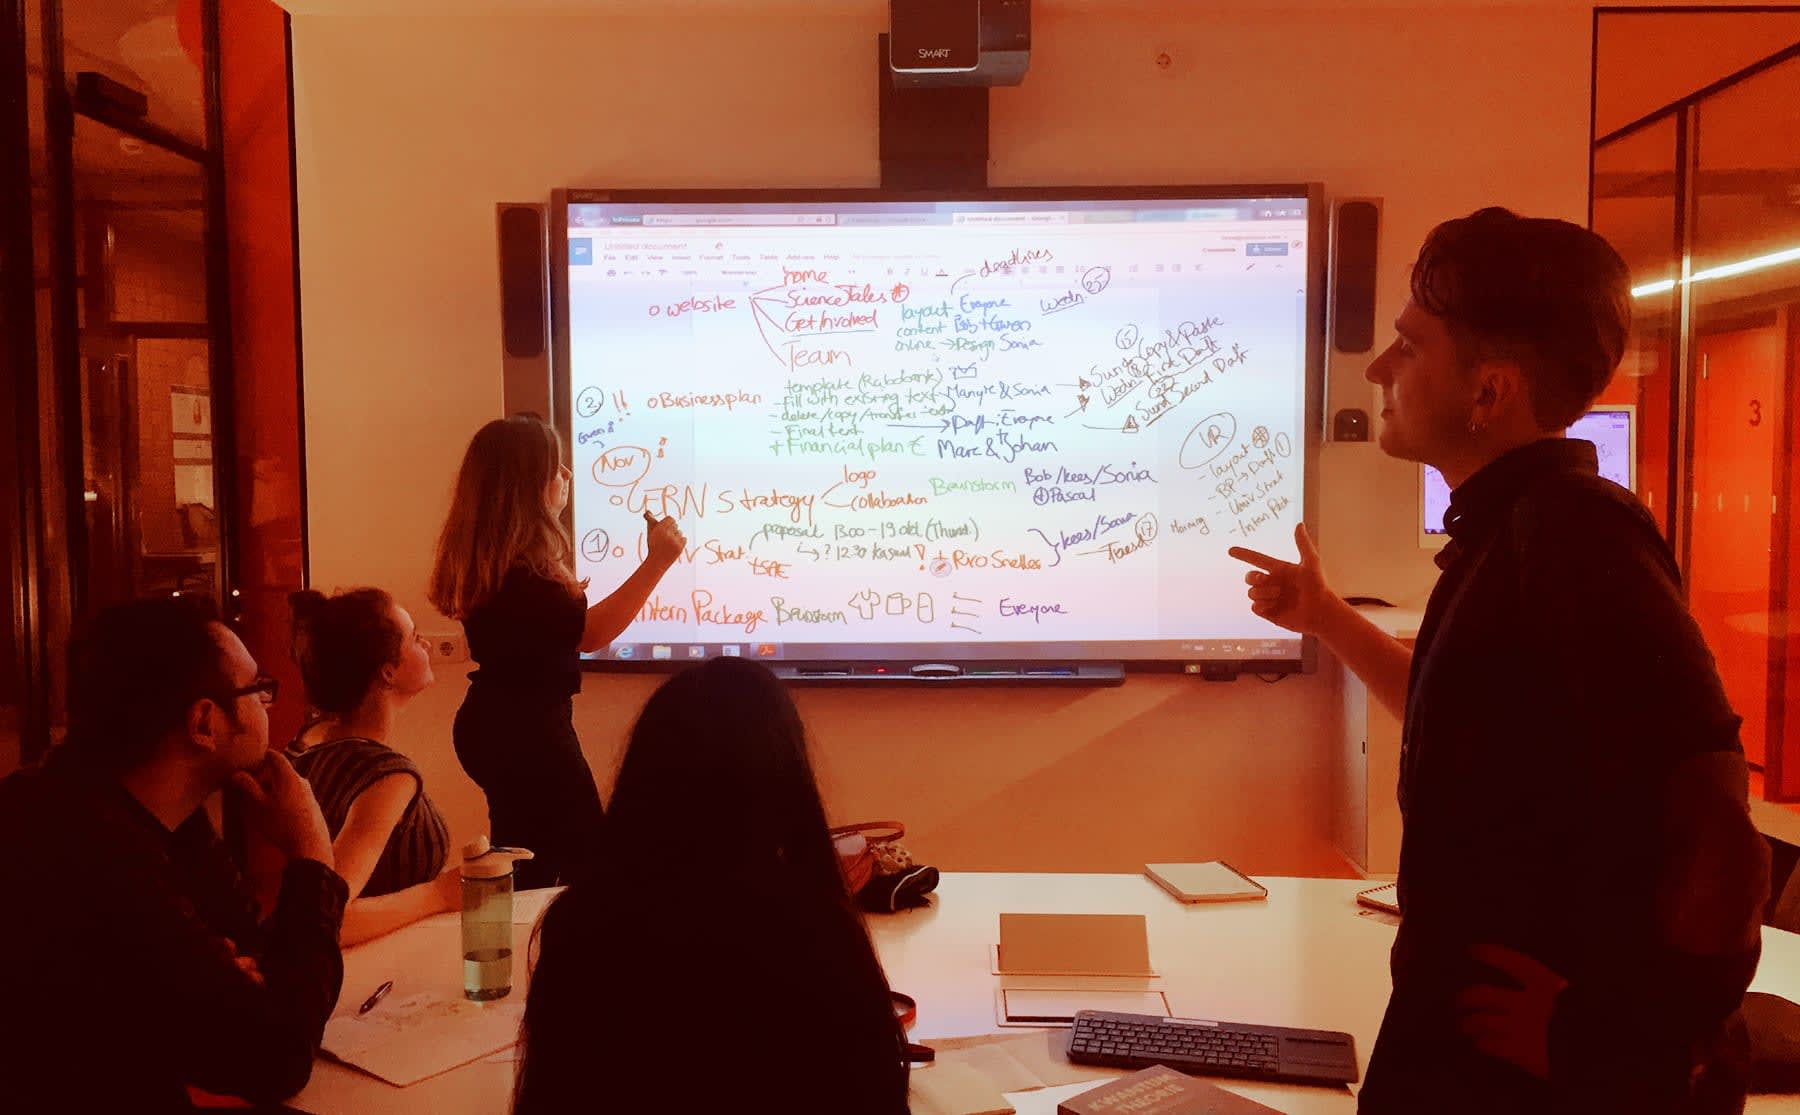 SMART
Untitled document
File Edit View Insert Format Tools Table Add-ons Help
o website
home
ScienceTales
Get Involved
Team
deadlines
layout Everyone
content Bob + Gwen
online → Design Sonia
Wedn. 25
2 !! o Businessplan
template (Rabobank)
- Fill with existing text
- delete/copy/transfer text
- Final text
+ Financial plan €
Manyre & Sonia
Draft: Everyone
Marc & Johan
15
Sun Copy & Paste
Wedn 18 First Draft
Sund 22 Second Draft
Nov
o CERN Strategy
logo
Collaboration
Brainstorm Bob/Kees/Sonia
+ Pascal
1 o
Strat
proposal 13.00 - 19 okt (Thursd)
? 12:30
! + Rico Sneller
Kees/Sonia
Tuesd 17
Intern Package Brainstorm
Everyone
VR
- layout
- BP → Draft 1
- Univ Strat
- Intern Pack
Morning
3
KWANTUM
THEORIE